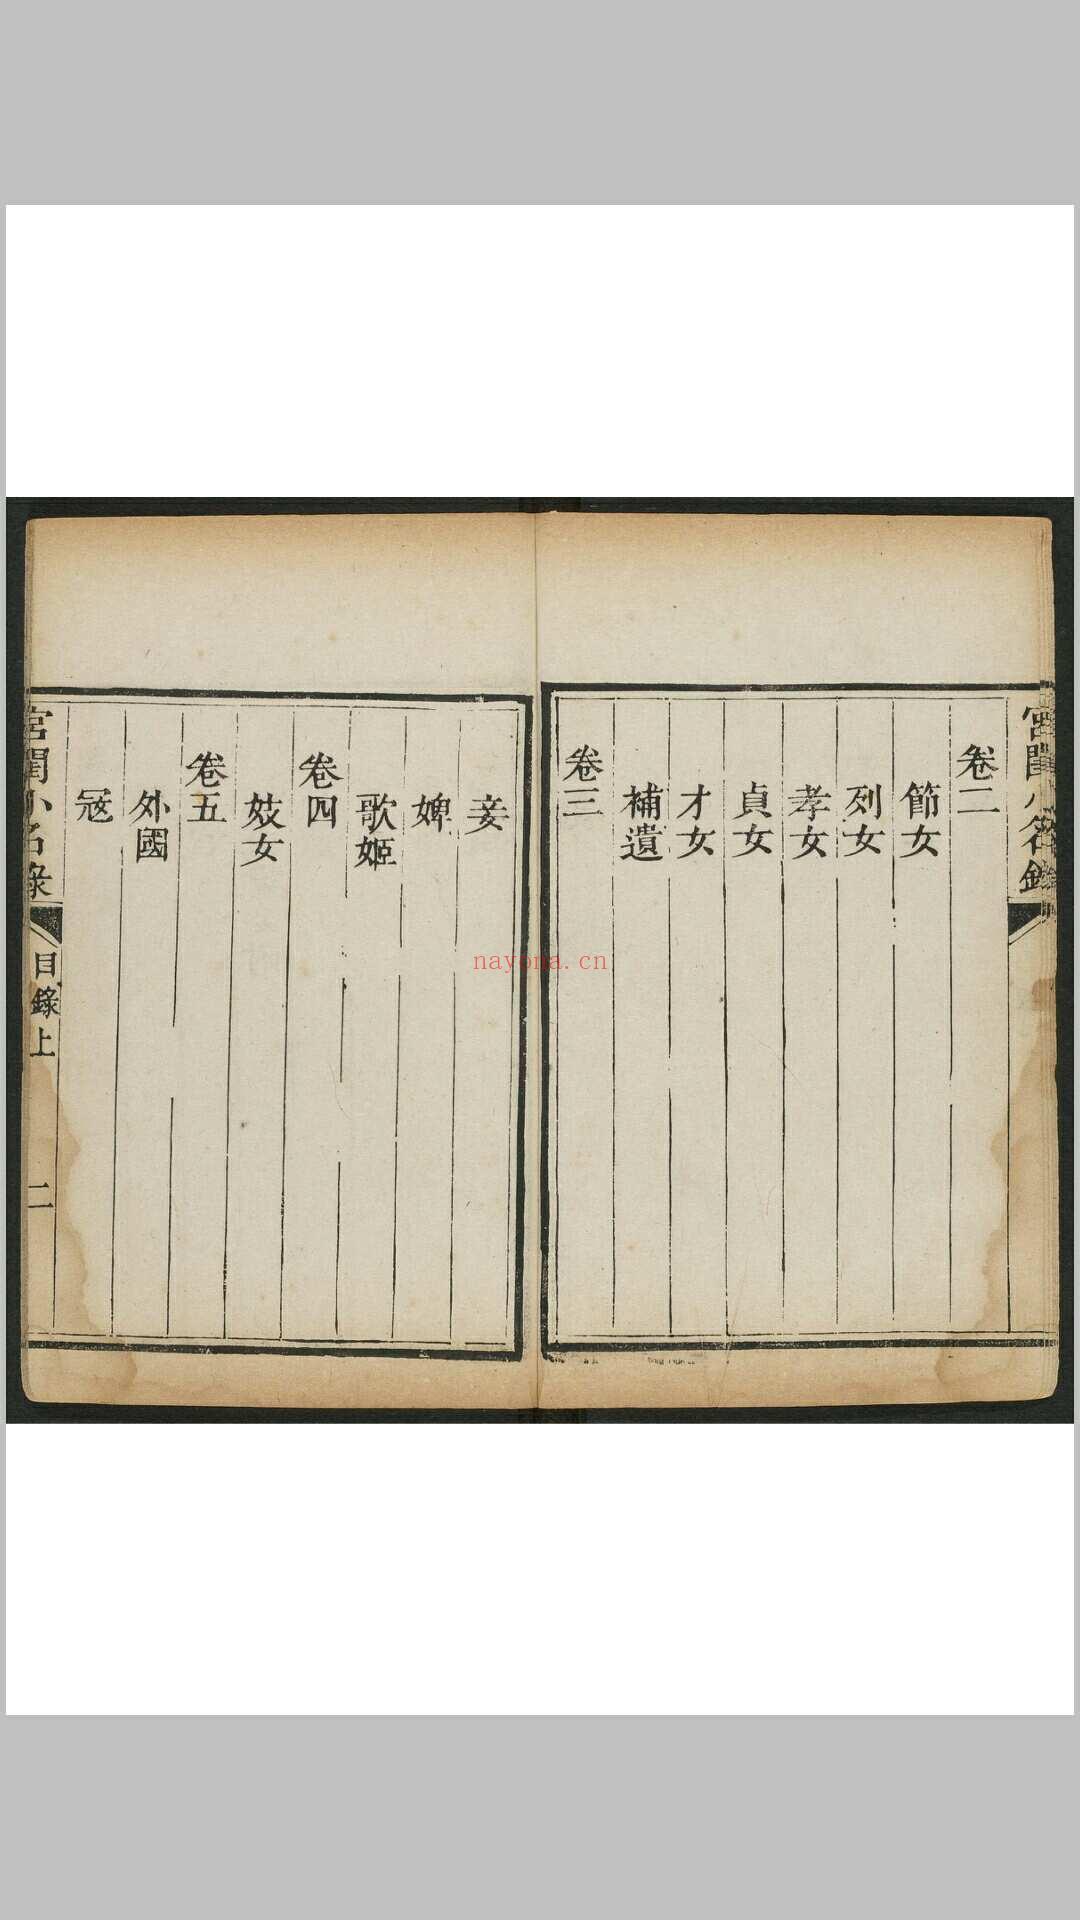 宮閨小名錄
卷二
節女
列女
孝女
貞女
才女
補遺
卷三
妾
婢
歌姬
卷四
妓女
卷五
外國
寇
宮閨小名錄
目錄上
二
nayona.cn